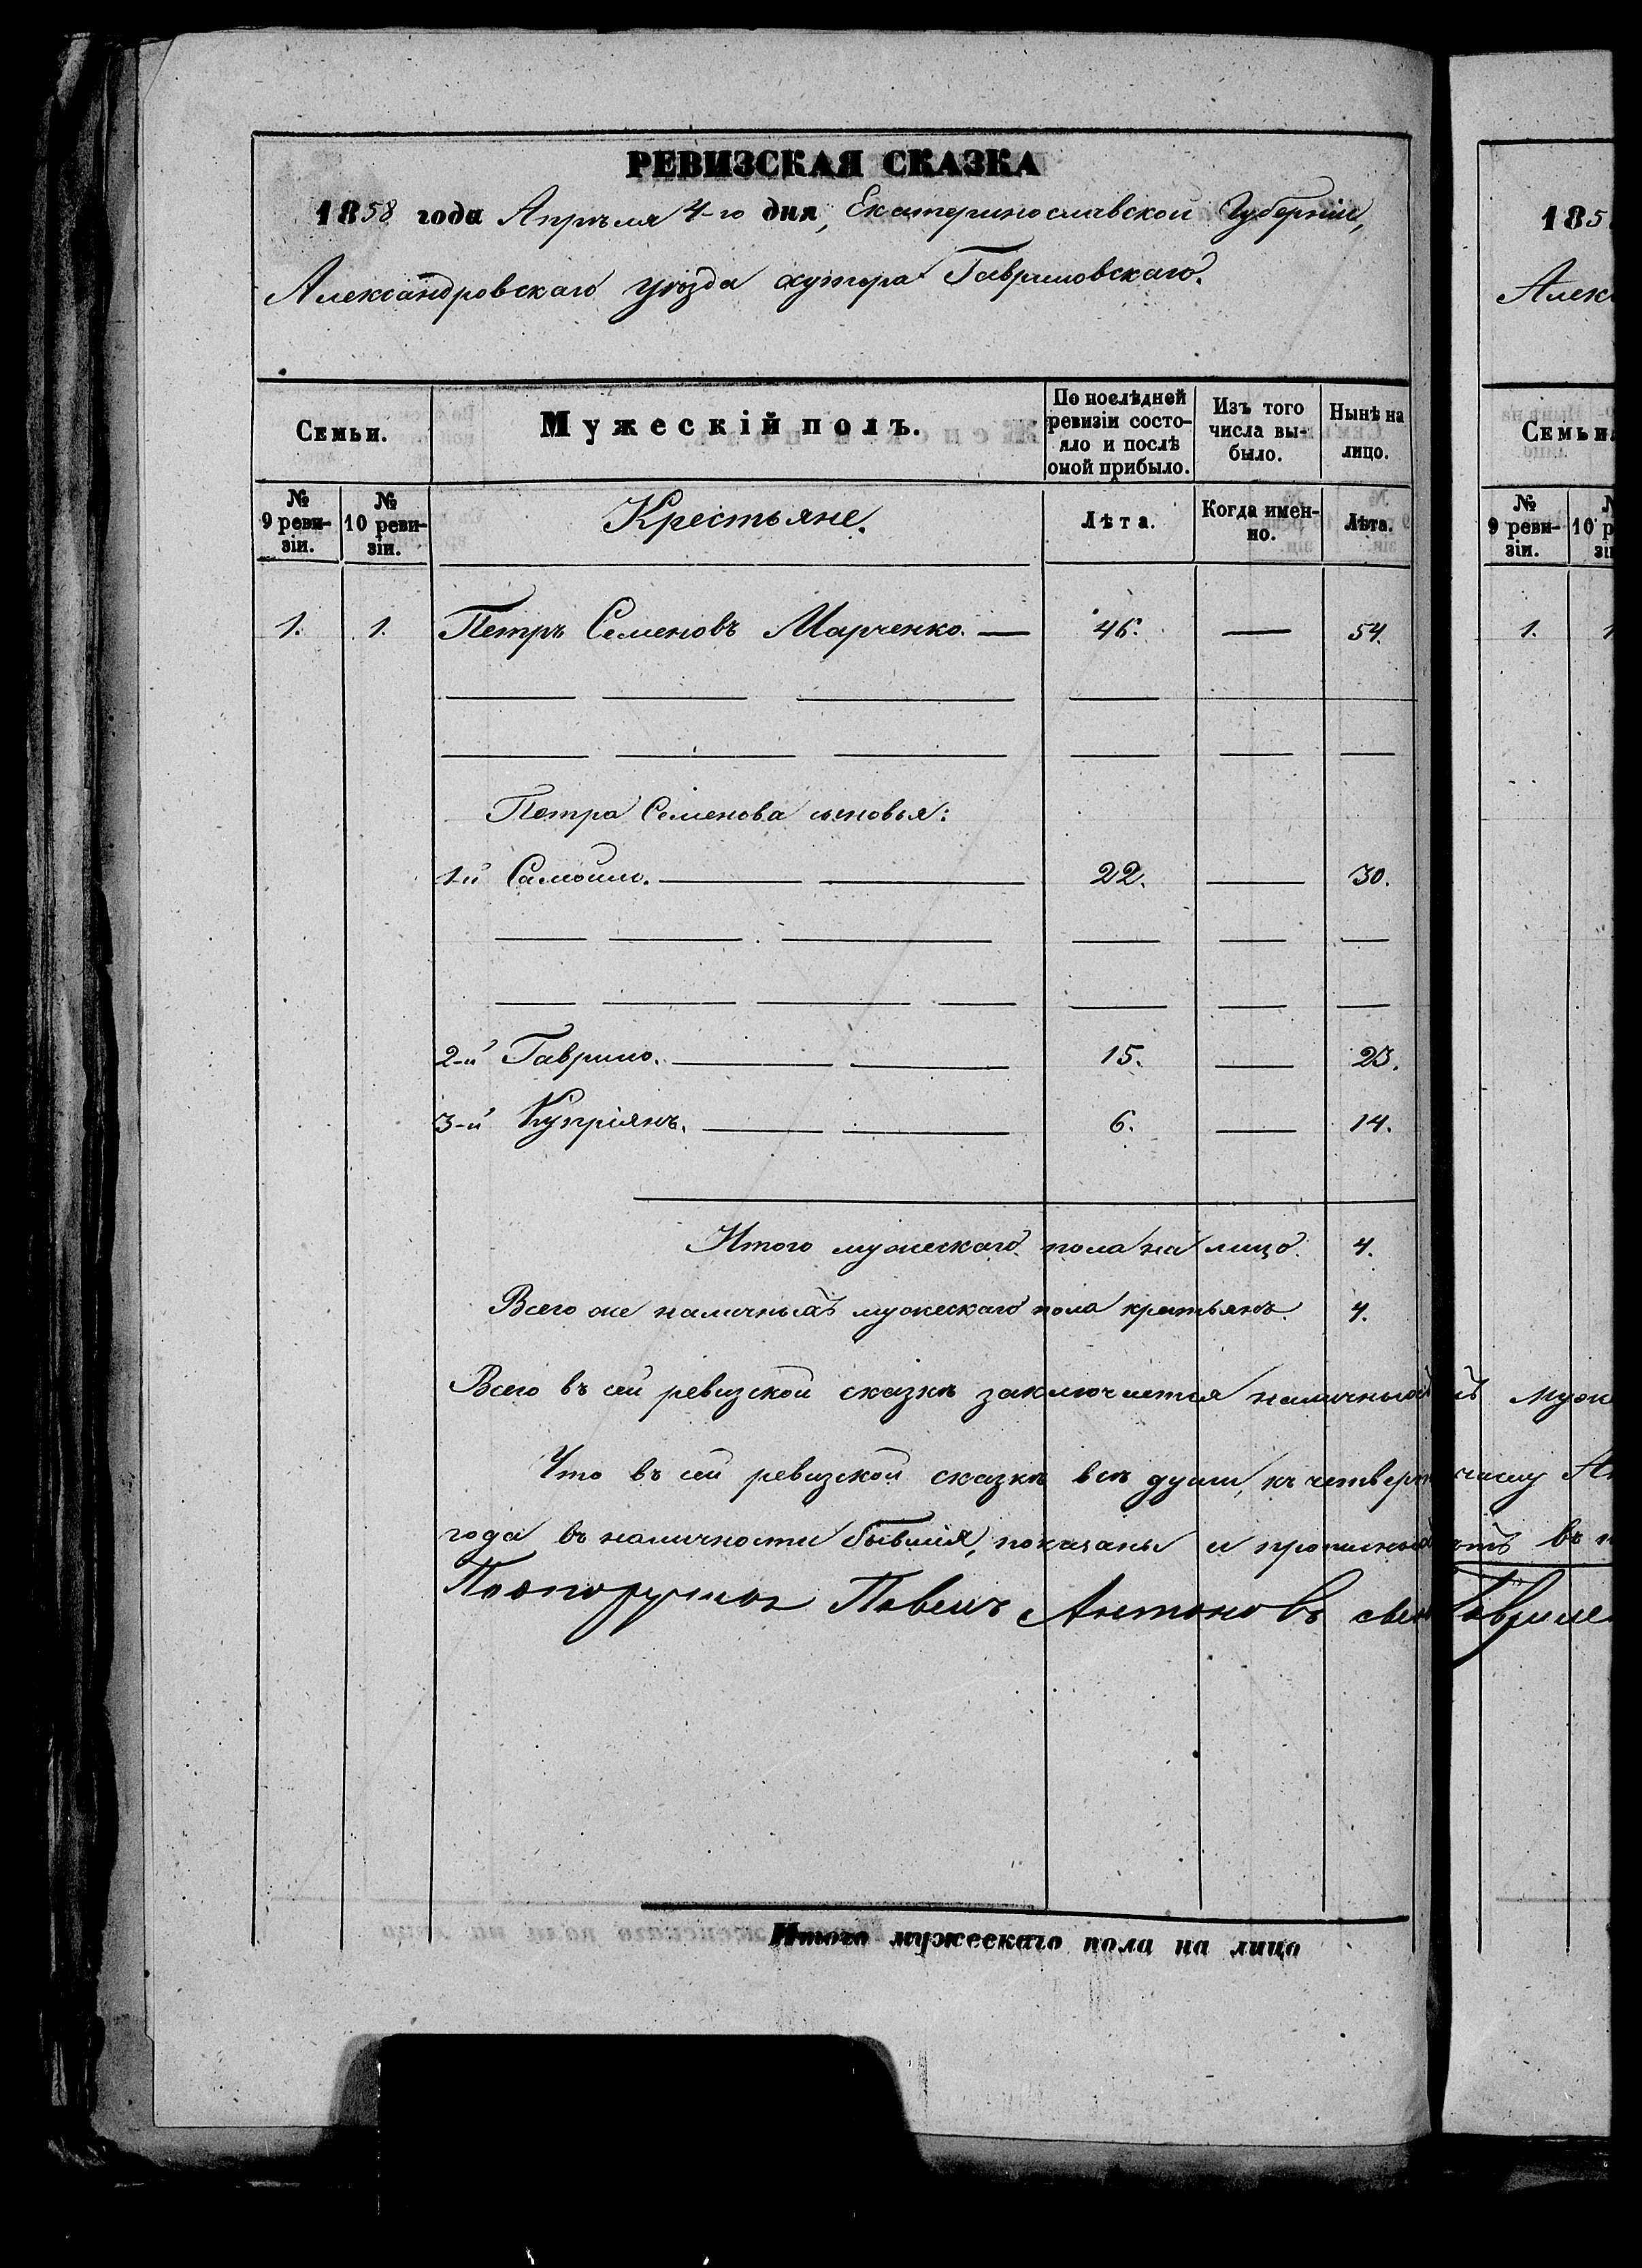 РЕВИЗСКАЯ СКАЗКА
1858 года Апрѣля 4-го дня, Екатеринославской Губерніи,
Александровскаго уѣзда хутора Гавриловскаго.
Семьи.
Мужескій полъ.
По послѣдней ревизіи состо-
яло и послѣ
оной прибыло.
Изъ того
числа вы-
было.
Нынѣ на
лицо.
№
9 реви-
зіи.
№
10 реви-
зіи.
Крестьяне.
Лѣта.
Когда имен-
но.
Лѣта.
1. 1. Петръ Семеновъ Марченко. — 46. — 54.
Петра Семенова сыновья:
1-й Самойло. 22. — 30.
2-й Гаврило. 15. — 23.
3-й Купріянъ. 6. — 14.
Итого мужескаго пола на лицо. 4.
Всего же наличныхъ мужескаго пола крестьянъ. 4.
Всего въ сей ревизской сказкѣ заключается наличныхъ
Что въ сей ревизской сказкѣ всѣ души, къ четверт
года въ наличности бывшія, показаны и
Подпоручикъ Павелъ Антоновъ
Итого мужескаго пола на лицо
185
Алек
Семьи
№
9 реви-
зіи.
№
10 р
зі
1. 1
муже
числу
въ
Гаврил